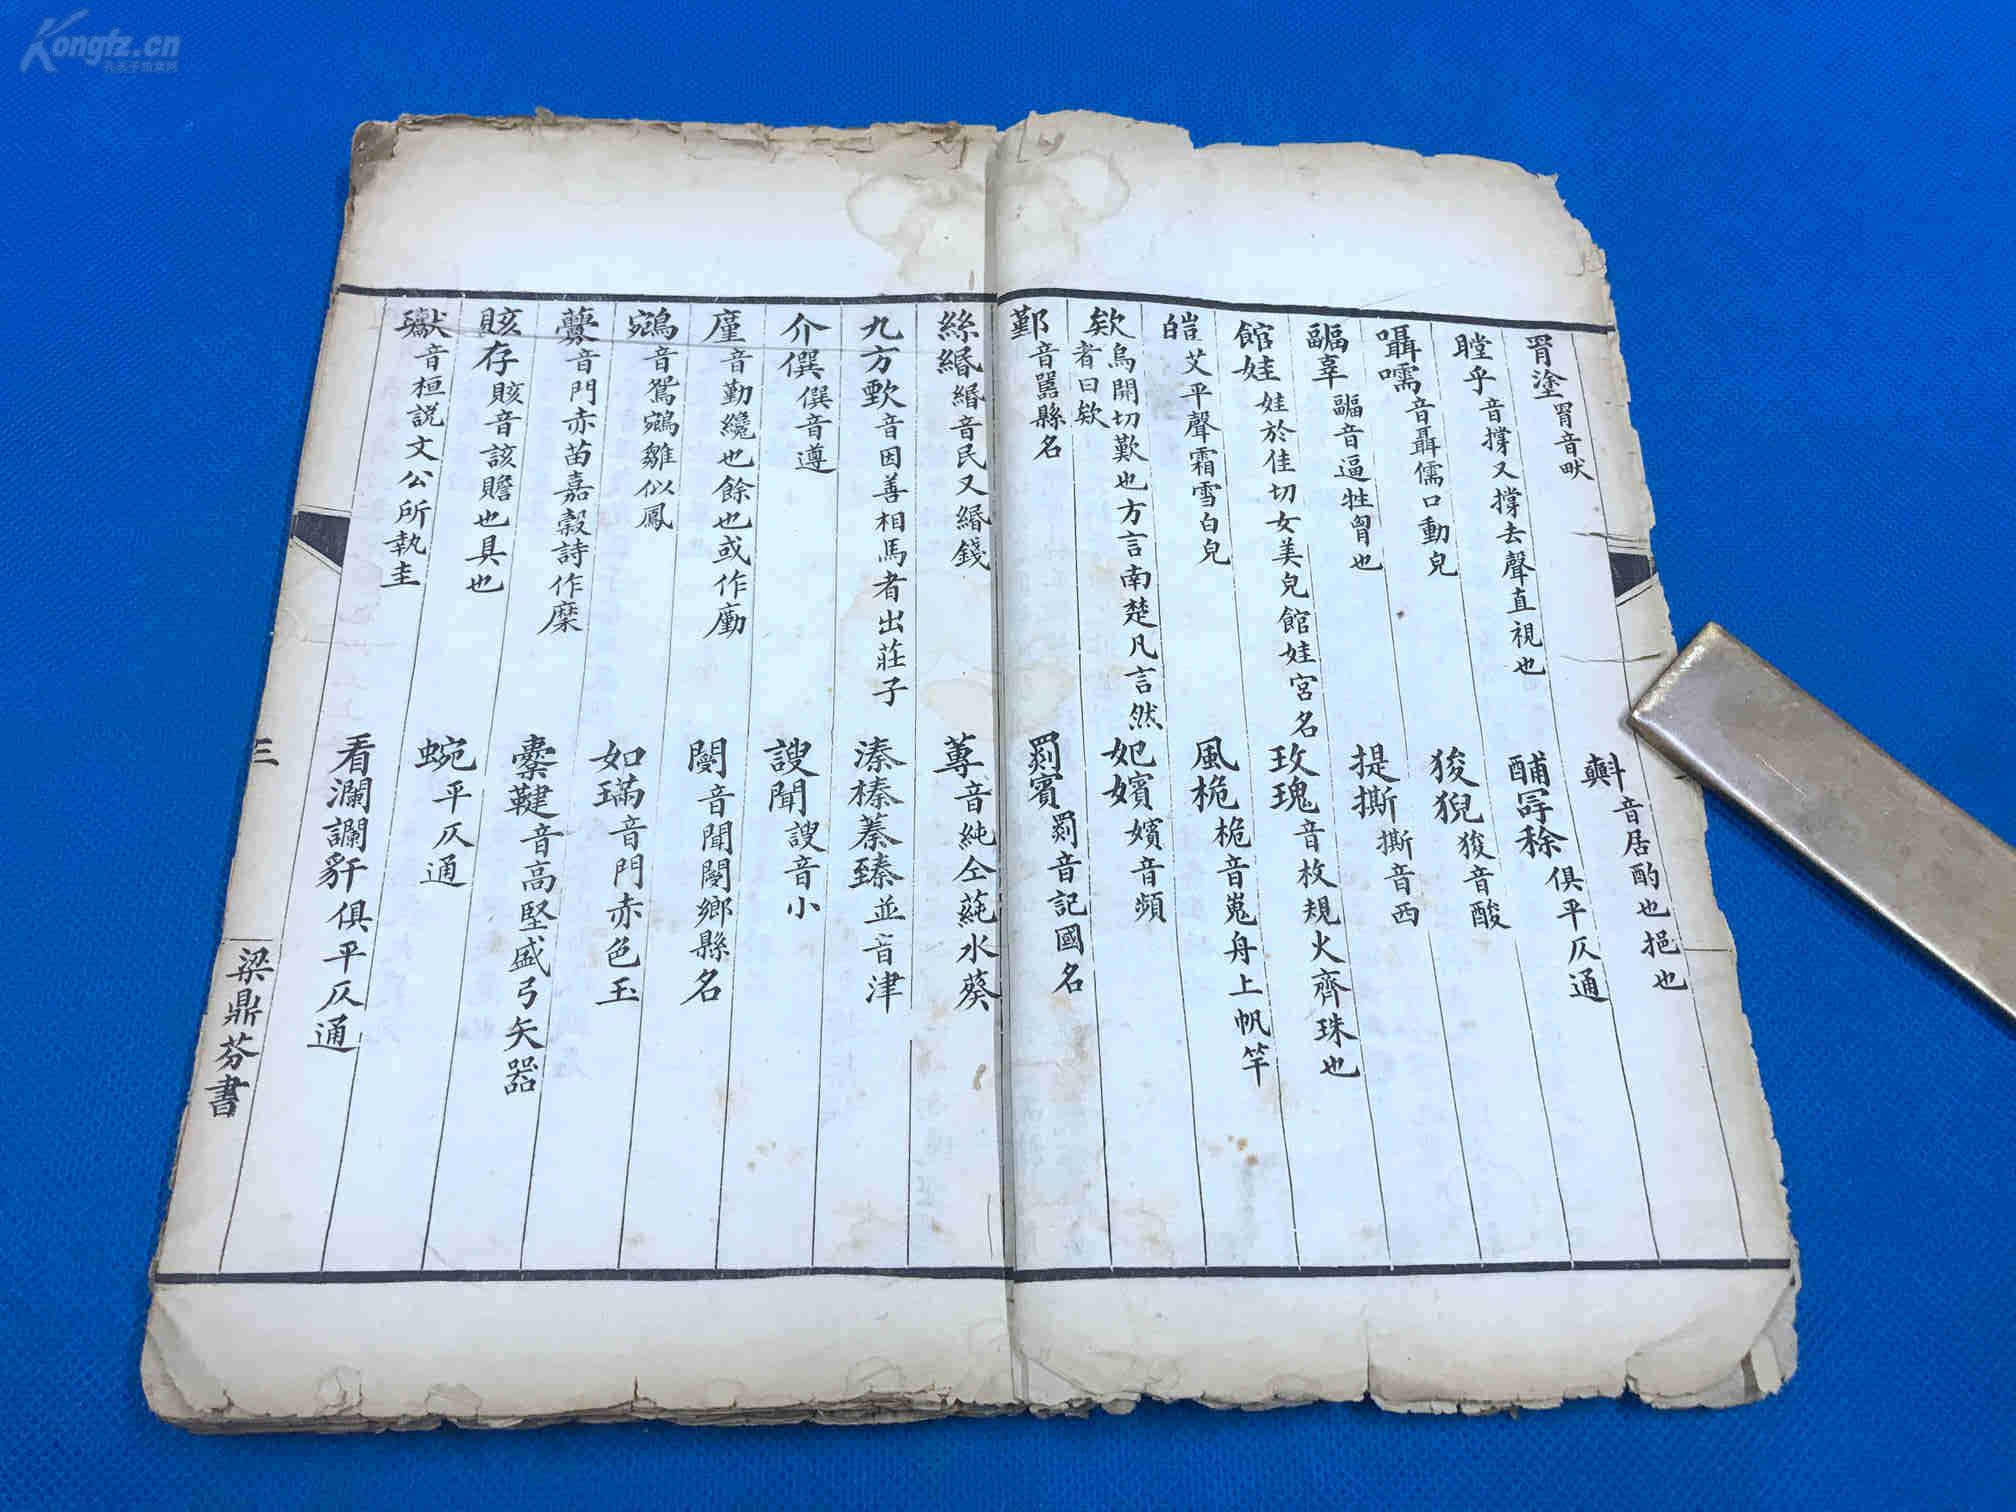 Kongfz.cn
孔夫子拍卖网
罥塗罥音畎
㪺音居酌也挹也
瞠乎音撐又撐去聲直視也
酺㝊稌俱平仄通
囁嚅音聶儒口動皃
狻猊狻音酸
疈辜疈音逼牲胷也
提撕撕音西
館娃娃於佳切女美皃館娃宮名
玫瑰音枚規火齊珠也
皚艾平聲霜雪白皃
風桅桅音嵬舟上帆竿
欸烏開切歎也方言南楚凡言然
者曰欸
妃嬪嬪音頻
鄞音嚚縣名
罽賓罽音記國名
絲緡緡音民又緡錢
蓴音純仝莼水葵
九方歅音因善相馬者出莊子
溱榛蓁臻並音津
介僎僎音遵
謏聞謏音小
廑音勤纔也餘也或作廑力
閿音聞閿鄉縣名
鵷音鴛鵷雛似鳳
如璊音門赤色玉
虋音門赤苗嘉穀詩作穈
櫜鞬音高堅盛弓矢器
賅存賅音該贍也具也
蜿平仄通
瓛音桓說文公所執圭
看瀾讕豻俱平仄通
三
梁鼎芬書